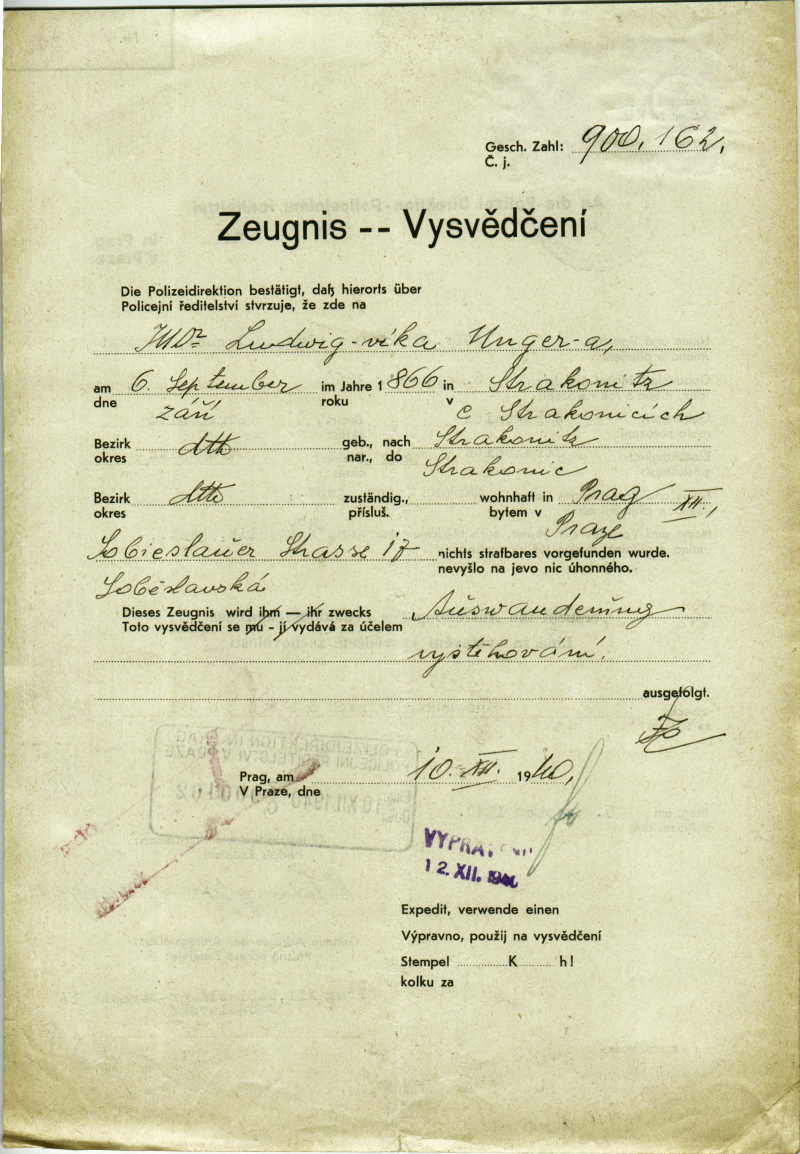 Gesch. Zahl: 900.162.
Č. j.
Zeugnis -- Vysvědčení
Die Polizeidirektion bestätigt, daß hierorts über
Policejní ředitelství stvrzuje, že zde na
JUDr Ludwig-víka Unger-a,
am 6. September im Jahre 1 866 in Strakonitz
dne září roku v Strakonicích
Bezirk dtto geb., nach Strakonitz
okres nar., do Strakonic
Bezirk dtto zuständig., wohnhaft in Prag XII.,
okres přísluš. bytem v Praze
Sobieslauer Strasse 17 nichts strafbares vorgefunden wurde.
nevyšlo na jevo nic úhonného.
Soběslavská
Dieses Zeugnis wird ihm — ihr zwecks Auswanderung
Toto vysvědčení se mu - jí vydává za účelem
vystěhování.
ausgefolgt.
Prag, am 10. XII. 1940,
V Praze, dne
VYPRA
12. XII. 1940
Expedit, verwende einen
Výpravno, použij na vysvědčení
Stempel K h!
kolku za